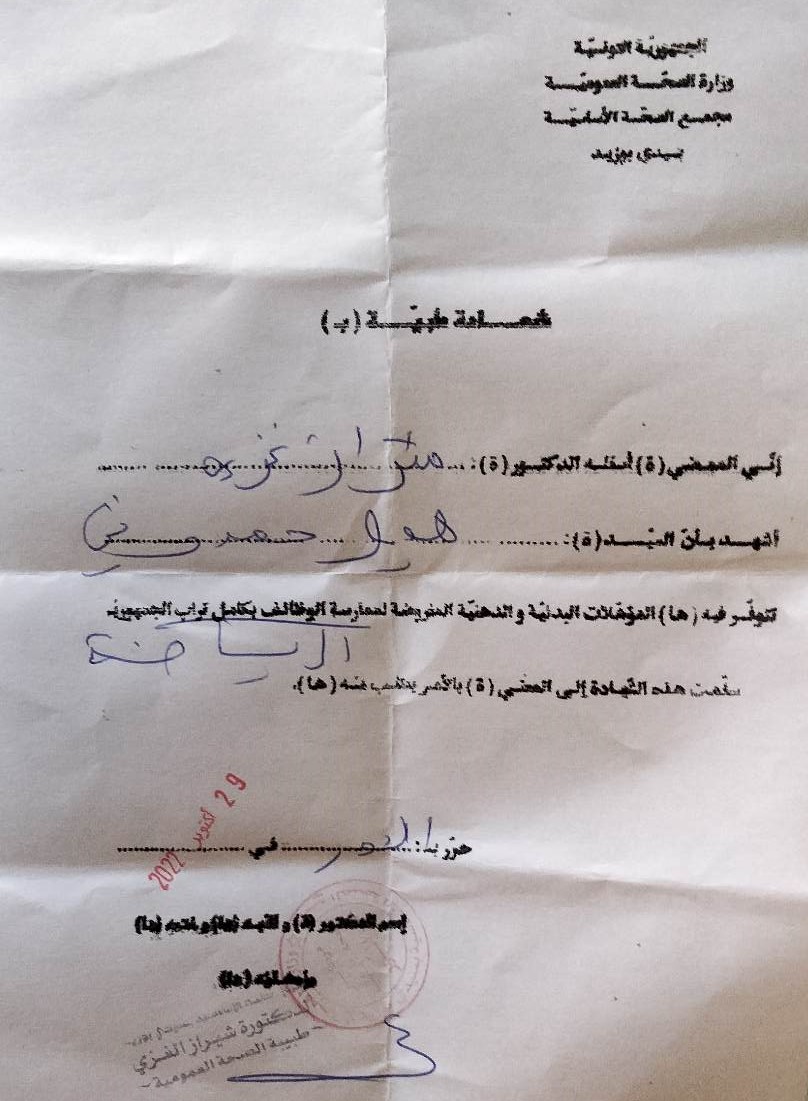 الجمهورية التونسية
وزارة الصحة العمومية
مجمع الصحة الأساسية
سيدي بوزيد
شهادة طبية (بـ)
إنّي الممضي (ة) أسفله الدكتور (ة):
أشهد بأن السيد (ة): حمدوني
تتوفّر فيه (ها) المؤهلات البدنية و الذهنية المفروضة لممارسة الوظائف بكامل تراب الجمهورية
الرياضة
سلّمت هذه الشهادة إلى المعني (ة) بالأمر بطلب منه (ها).
حرّر بـ: في 29 أكتوبر 2022
إسم الدكتور (ة) و لقبه (ها) و ختمه (ها)
وإمضائه (ها)
الدكتورة شيراز الغزي
- طبيبة الصحة العمومية -